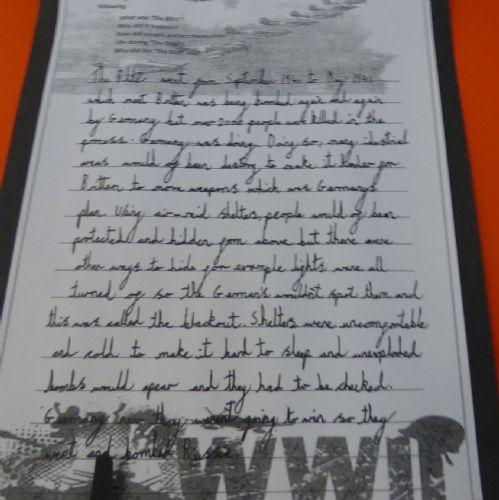 following:
your was 'The Blitz'?
Why did it happen?
How did people protect themselves
Life during 'The Blitz'
Why did the 'The Blitz' end
The Blitz went from September 1940 to May 1941
which meat Britten was being bombed again and again
by Germany but over 2000 people was killed in the
process. Germany was doing. Doing so, many idustrial
areas would of been destroy to make it harder for
Britten to more weapons which was Germany's
plan. Using air-raid shelters, people would of been
protected and hidden from above but there were
other ways to hide for example lights were all
turned of so the German's wouldn't spot them and
this was called the blackout. Shelters were uncomfortable
and cold to make it hard to sleep and unexploded
bombs would apear and they had to be checked.
Germany knew they weren't going to win so they
went and bombed Russia.
WWII